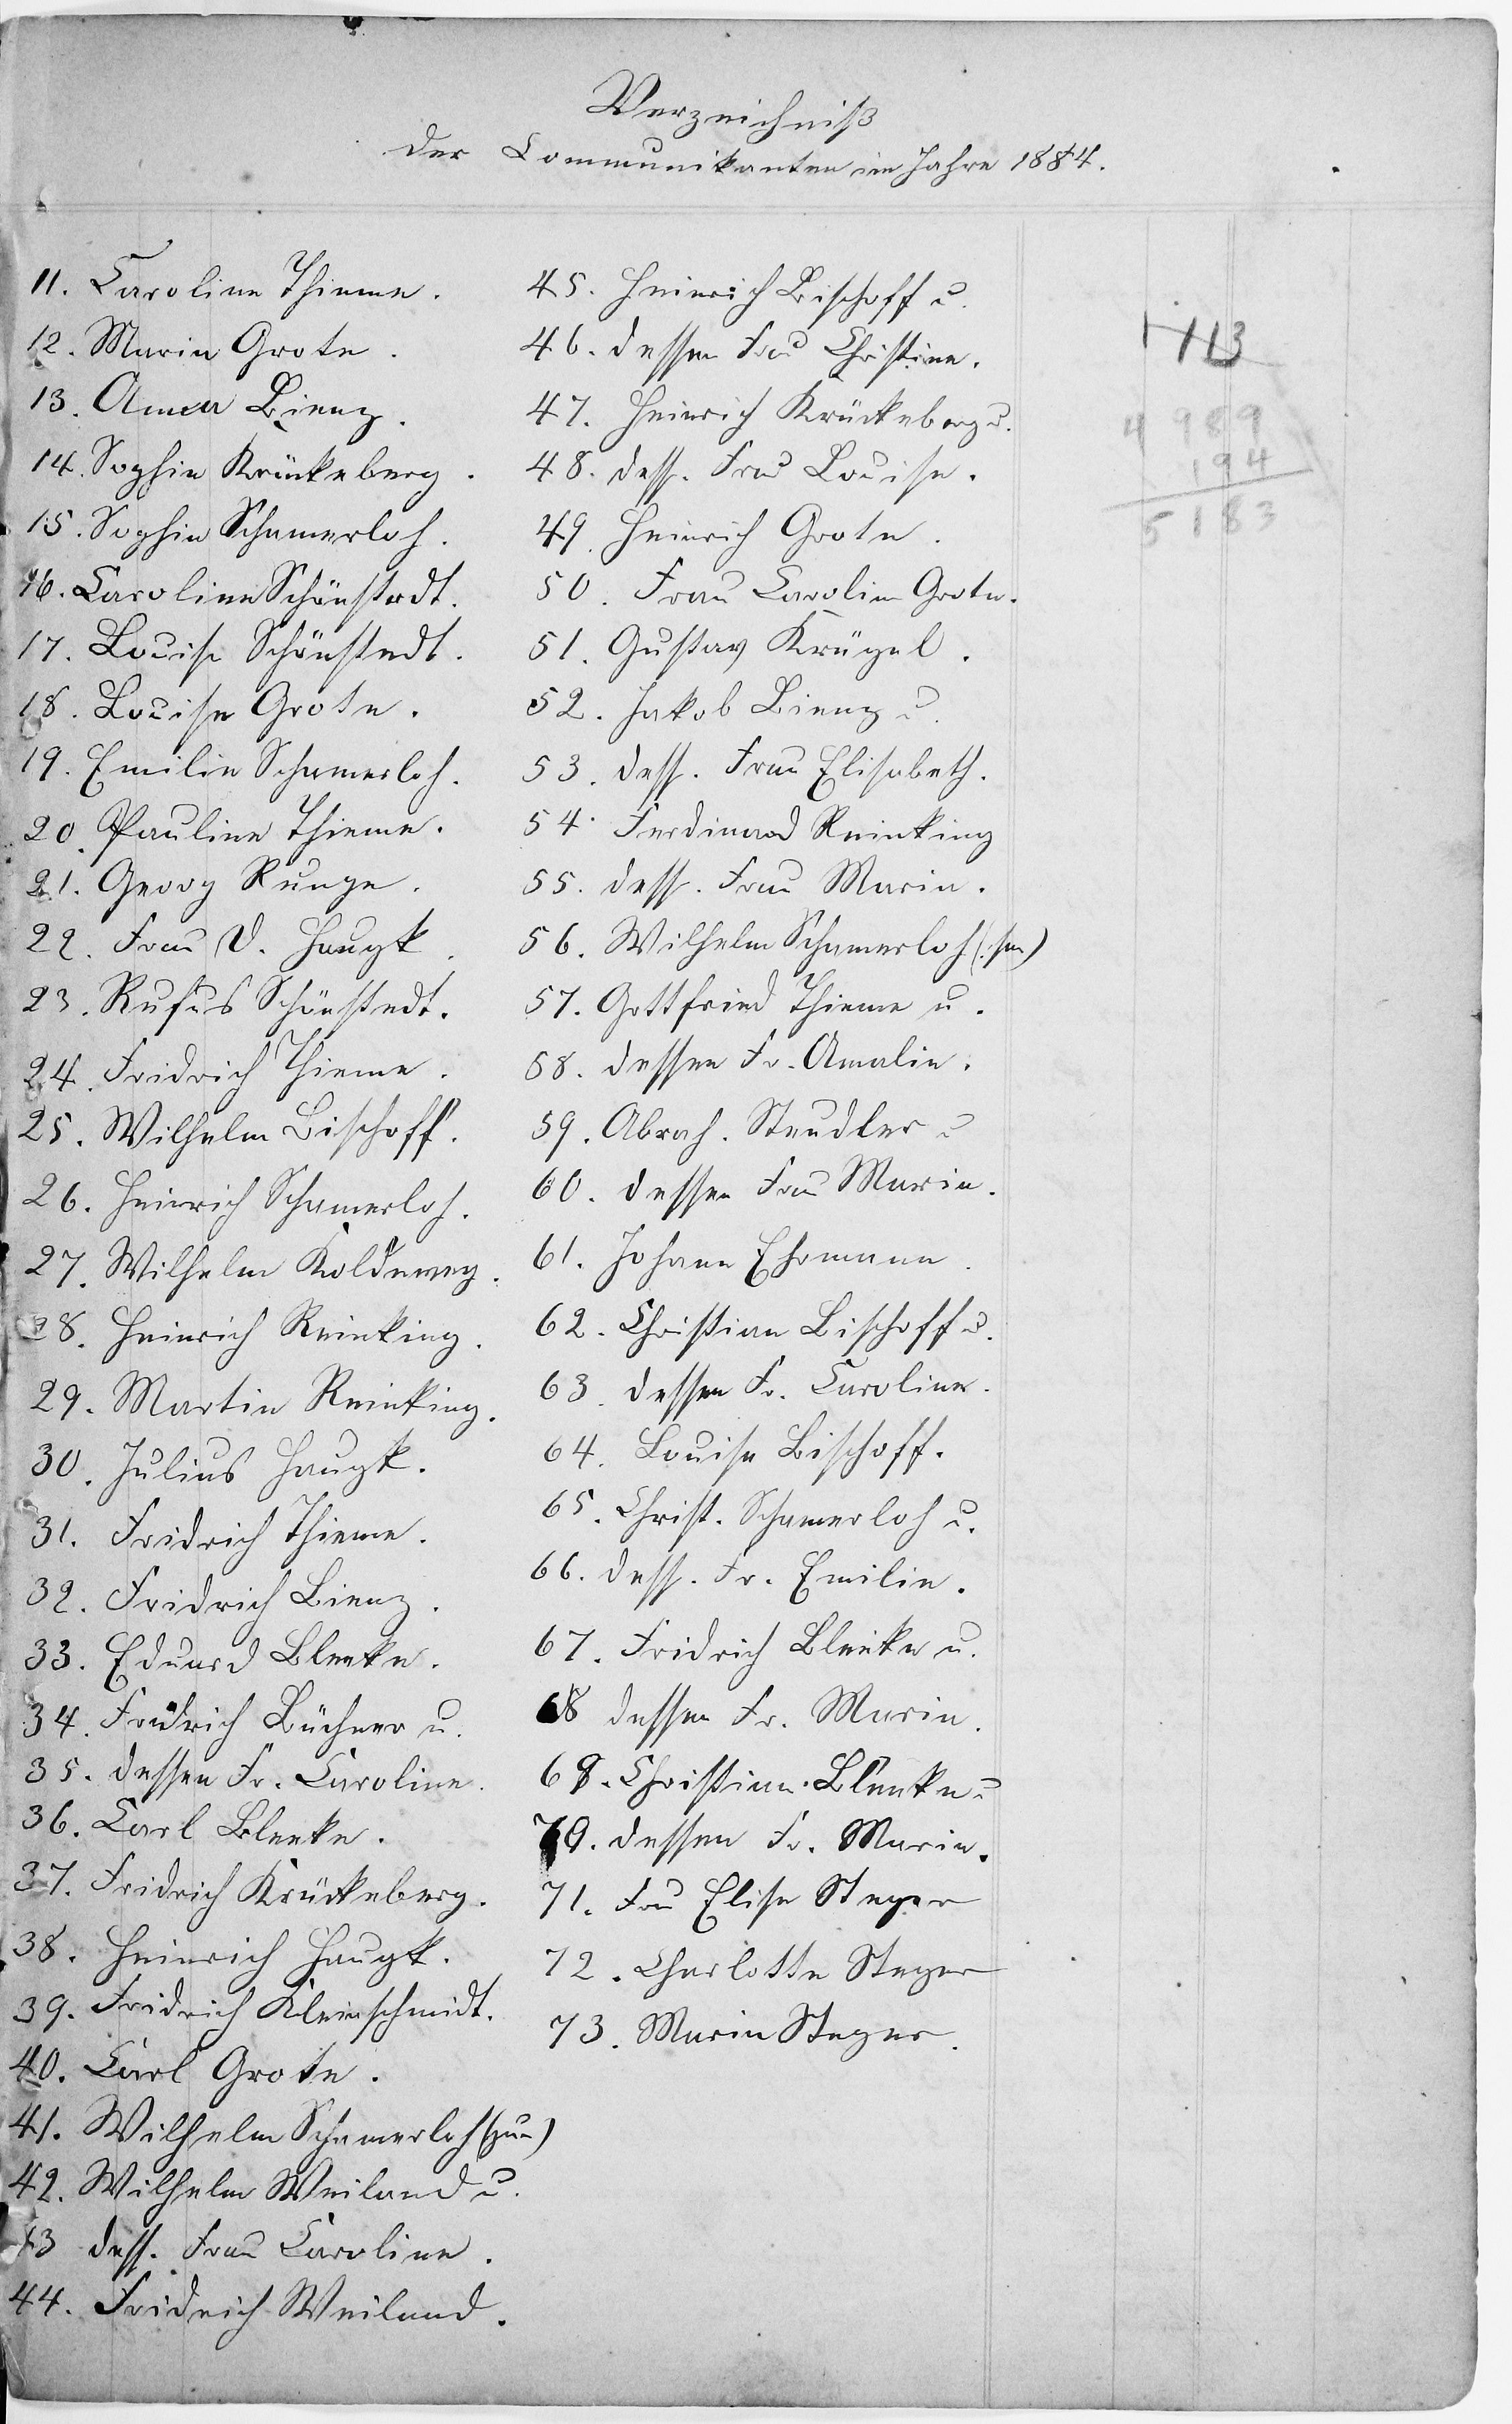 Verzeichniß
der Communikanten im Jahre 1884.
11. Caroline Thieme.
12. Marie Grote.
13. Anna Bienz.
14. Sophie Krückeberg.
15. Sophie Schamerloh.
16. Caroline Schönstedt.
17. Louise Schönstedt.
18. Louise Grote.
19. Emilie Schamerloh.
20. Pauline Thieme.
21. Georg Runge.
22. Frau D. Haugk.
23. Rufus Schönstedt.
24. Fridrich Thieme.
25. Wilhelm Bischoff.
26. Heinrich Schamerloh.
27. Wilhelm Koldewey.
28. Heinrich Reinking.
29. Martin Reinking.
30. Julius Haugk.
31. Fridrich Thieme.
32. Fridrich Bienz.
33. Eduard Bleeke.
34. Fridrich Büchner u.
35. dessen Fr. Caroline.
36. Carl Bleeke.
37. Fridrich Krückeberg.
38. Heinrich Haugk.
39. Fridrich Kleinschmidt.
40. Carl Grote.
41. Wilhelm Schamerloh (jun)
42. Wilhelm Weiland u.
43 dess. Frau Caroline.
44. Fridrich Weiland.
45. Heinrich Bischoff u.
46. dessen Frau Christine.
47. Heinrich Krückeberg u.
48. dess. Frau Louise.
49. Heinrich Grote.
50. Frau Caroline Grote.
51. Gustav Krügel.
52. Jakob Bienz u.
53. dess. Frau Elisabeth.
54. Ferdinand Reinking
55. dess. Frau Marie.
56. Wilhelm Schamerloh (sen)
57. Gottfried Thieme u.
58. dessen Fr. Amalie.
59. Abrah. Steudler u
60. dessen Frau Marie.
61. Johann Ehrmann.
62. Christian Bischoff u.
63. dessen Fr. Caroline.
64. Louise Bischoff.
65. Christ. Schamerloh u.
66. dess. Fr. Emilie.
67. Fridrich Bleeke u.
68 dessen Fr. Marie.
69. Christian Bleeke u
70. dessen Fr. Marie.
71. Frau Elise Steger
72. Charlotte Steger
73. Marie Steger.
113
4989
194
5183